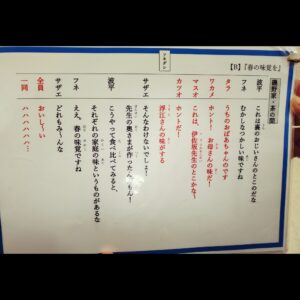 【B】『春の味覚を』
磯野家・茶の間
波平 これは裏のおじいさんのとこのだな
フネ むかしなつかしい味ですね
タラ うちのおばあちゃんのです
ワカメ ホント、お母さんの味だ!
マスオ これは、伊佐坂先生のとこかな~
カツオ ホントだ!
浮江さんの味がする
サザエ そんなわけないでしょ!
先生の奥さまが作ったんだもん!
波平 こうやって食べ比べてみると、
それぞれの家庭の味というものがあるな
フネ ええ、春の味覚ですね
サザエ どれもみ~んな
全員 おいし~い
一同 ハハハハハ…